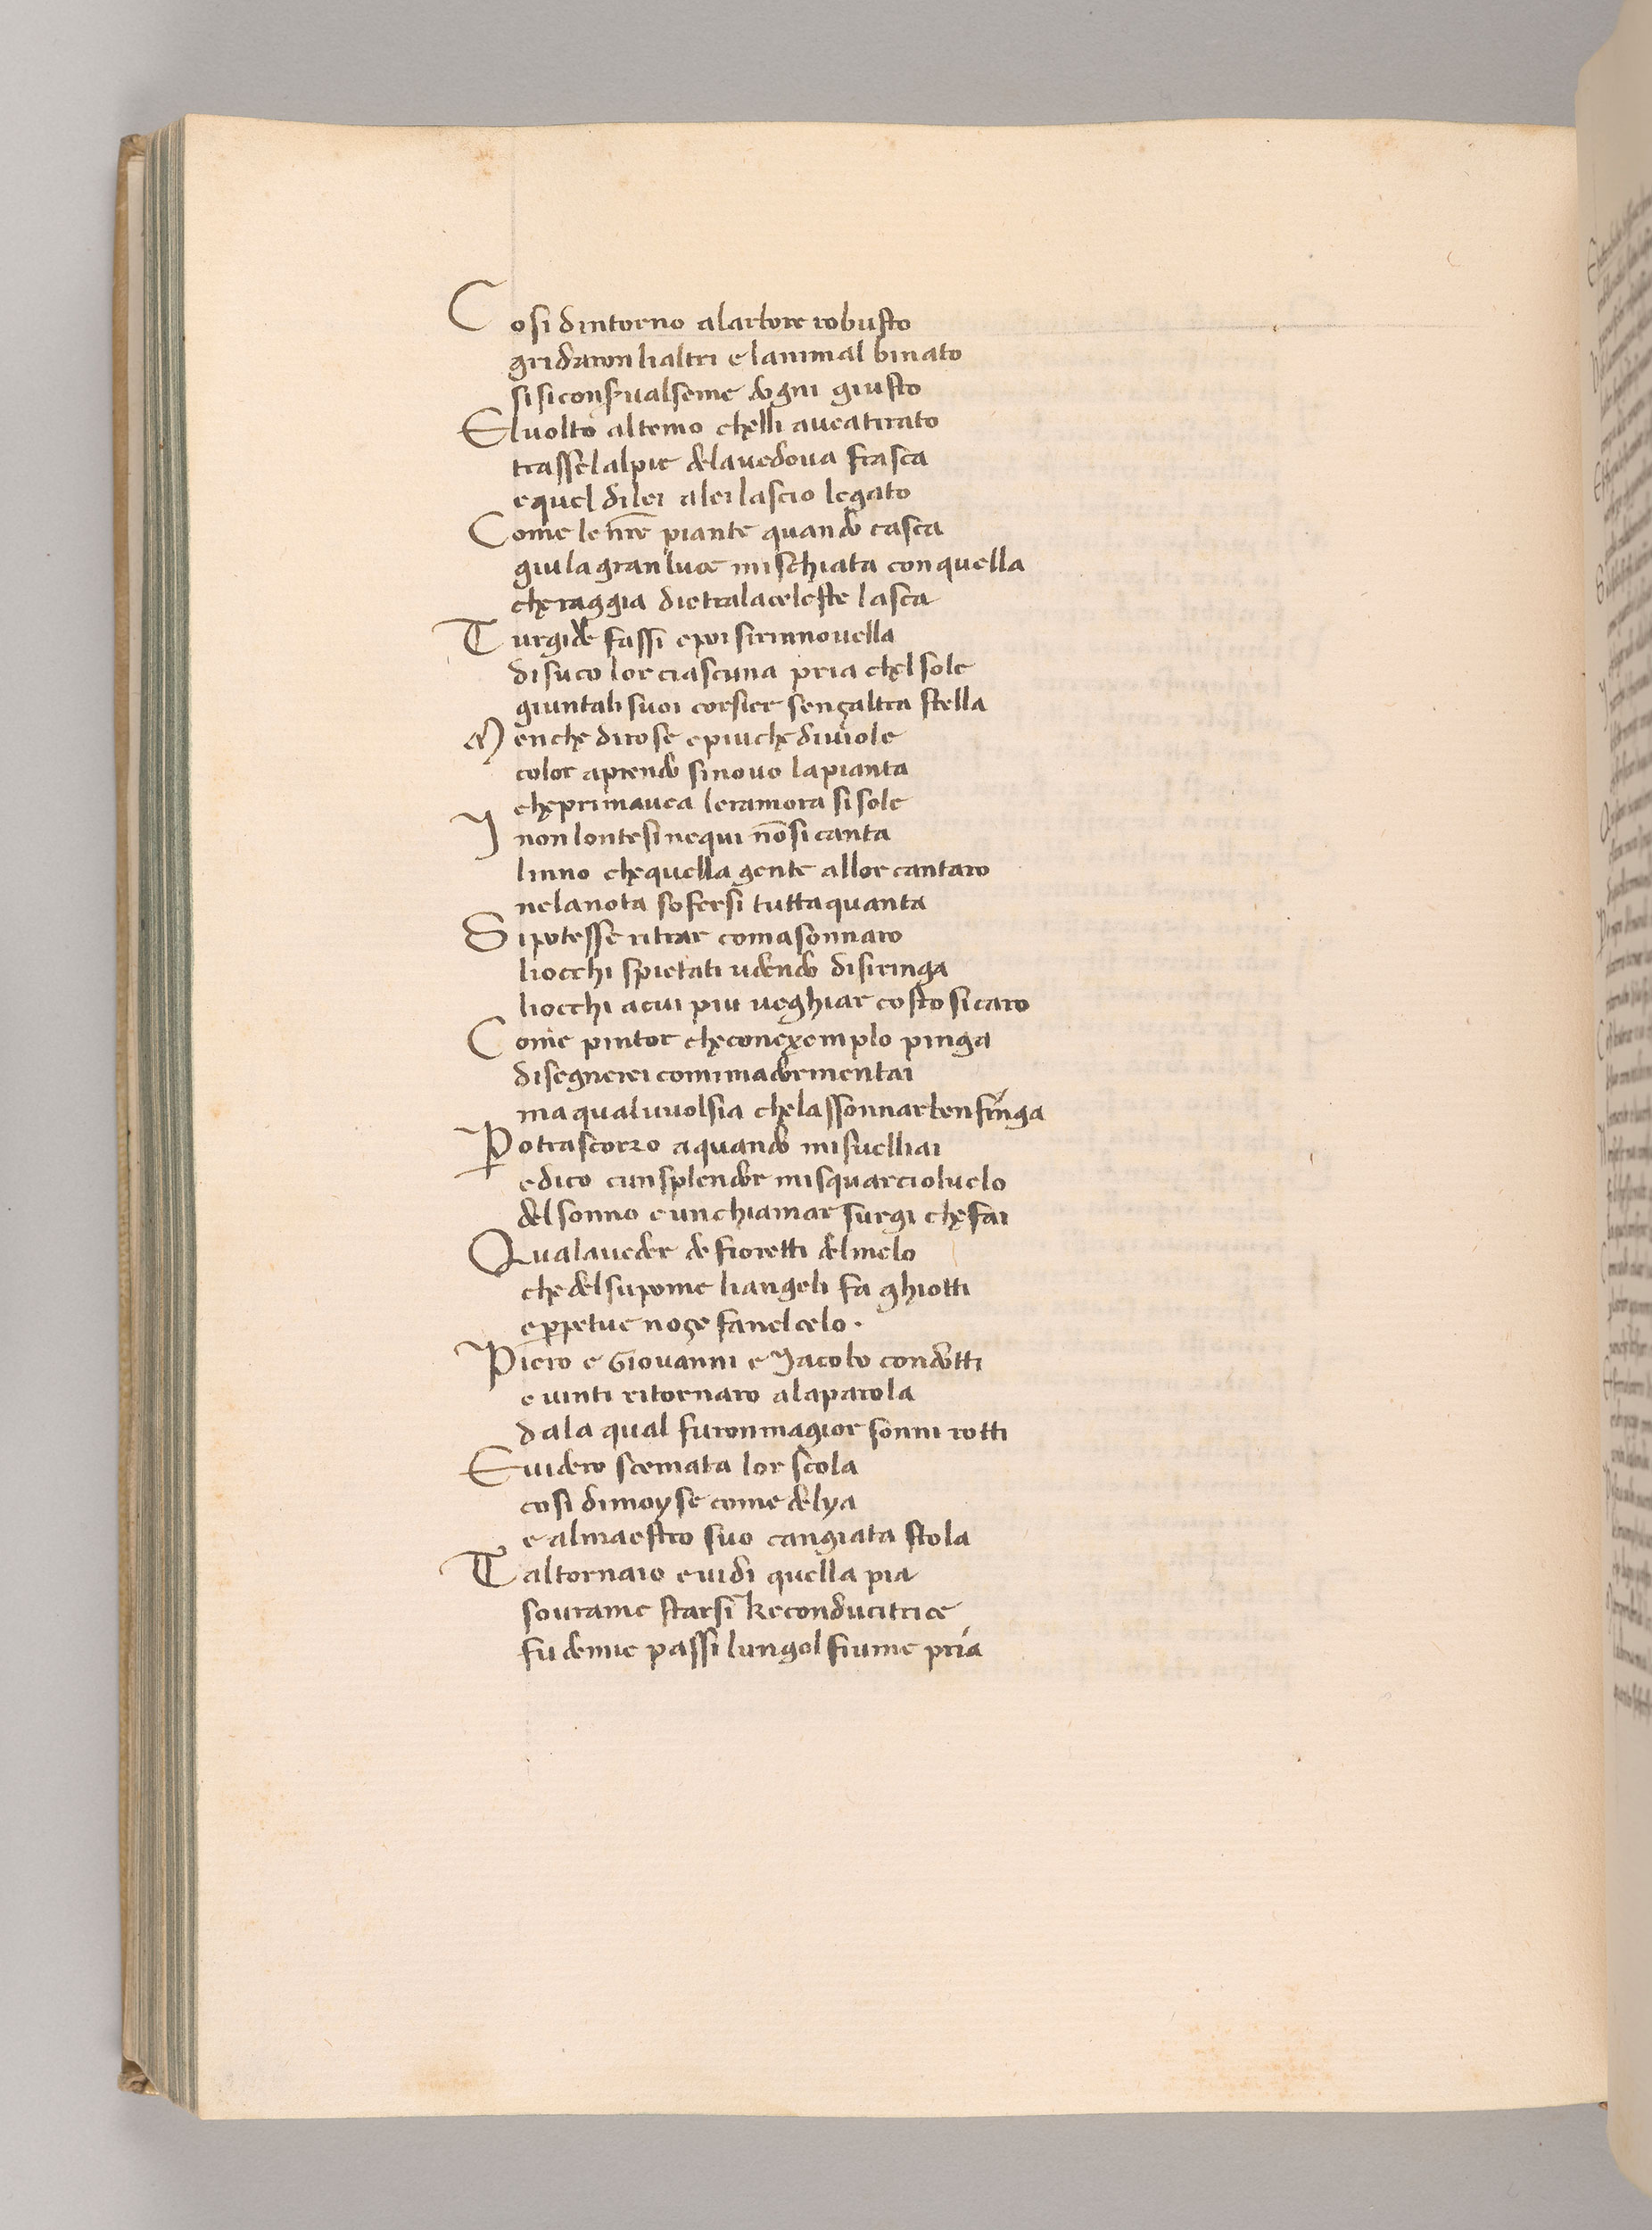 Cosi dintorno alarbore robusto
gridaron lialtri e lanimal binato
si si conserualseme dogni giusto
Eluolto altemo chelli aueatirato
trasselalpie delauedoua frasca
equel dilei alei lascio legato
Come le nre piante quando casca
giula granluce mischiata conquella
cheraggia dietralaceleste lasca
Turgide fassi epoi sirinnouella
disuco lor ciascuna pria chel sole
giuntali suoi corsier sençaltra stella
Menche dirose epiuche diuiole
color aprendo sinouo lapianta
cheprimauea leramora si sole
I nonlontesi nequi nō si canta
linno chequella gente allor cantaro
nelanota sofersi tuttaquanta
Sipotesse ritrar comasonnaro
liocchi spietati udendo disiringa
liocchi acui piu ueghiar costo sicaro
Come pintor checonexemplo pinga
disegnerei comimadormentai
ma qualuuolsia chelassonnarbenfinga
Potrascorro aquando misuelliai
edico cunsplendor misquarcioluelo
delsonno eunchiamar surgi chefai
Qualaueder de fioretti delmelo
che delsupome liangeli fa ghiotti
e ꝑpetue noçe fanelcelo .
Piero e Giouanni e Jacobo condotti
e uinti ritornaro alaparola
dala qual furonmagior sonni rotti
Euidero scemata lor scola
cosi dimoyse come delya
e almaestro suo cangiata stola
Taltornaio euidi quella pia
sourame starsi keconducitrice
fu demie passi lungol fiume pría